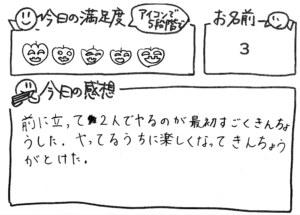 今日の満足度
アイコンで
5段階で
お名前
3
今日の感想
前に立って2人でヤるのが最初すごくきんちょ
うした。ヤってるうちに楽しくなってきんちょう
がとけた。